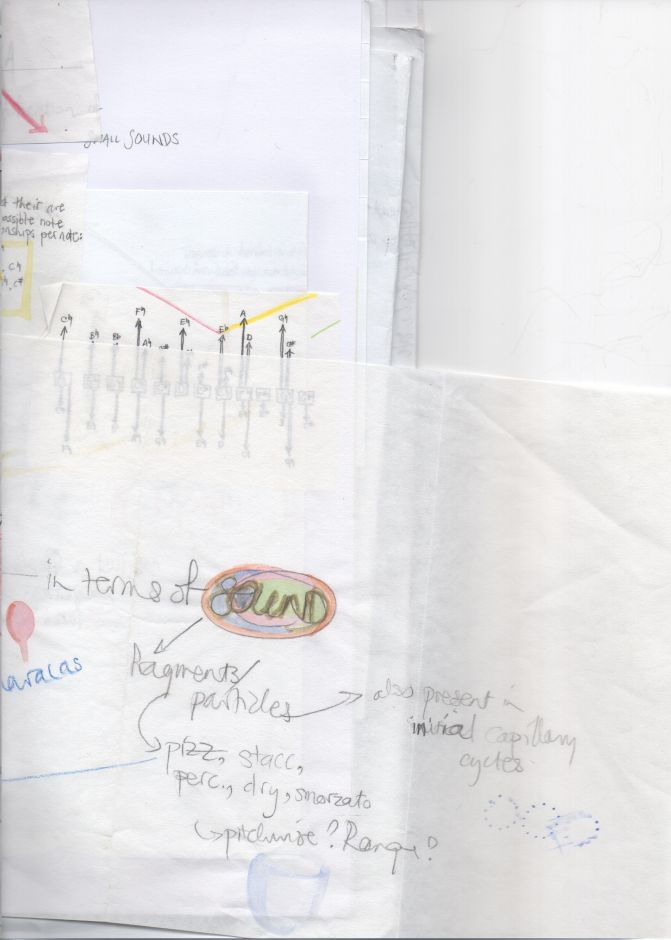 SMALL SOUNDS
their are
ossible note
onships per note:
, C♮
♮, C#
C♮
B♮
Bb
F♮
A♮
E♮
Eb
A
D
G♮
in terms of SOUND
fragments/
particles
also present in
initial capillary
cycles
aracas
pizz, stacc,
perc., dry, smorzato
pitchwise? Range?